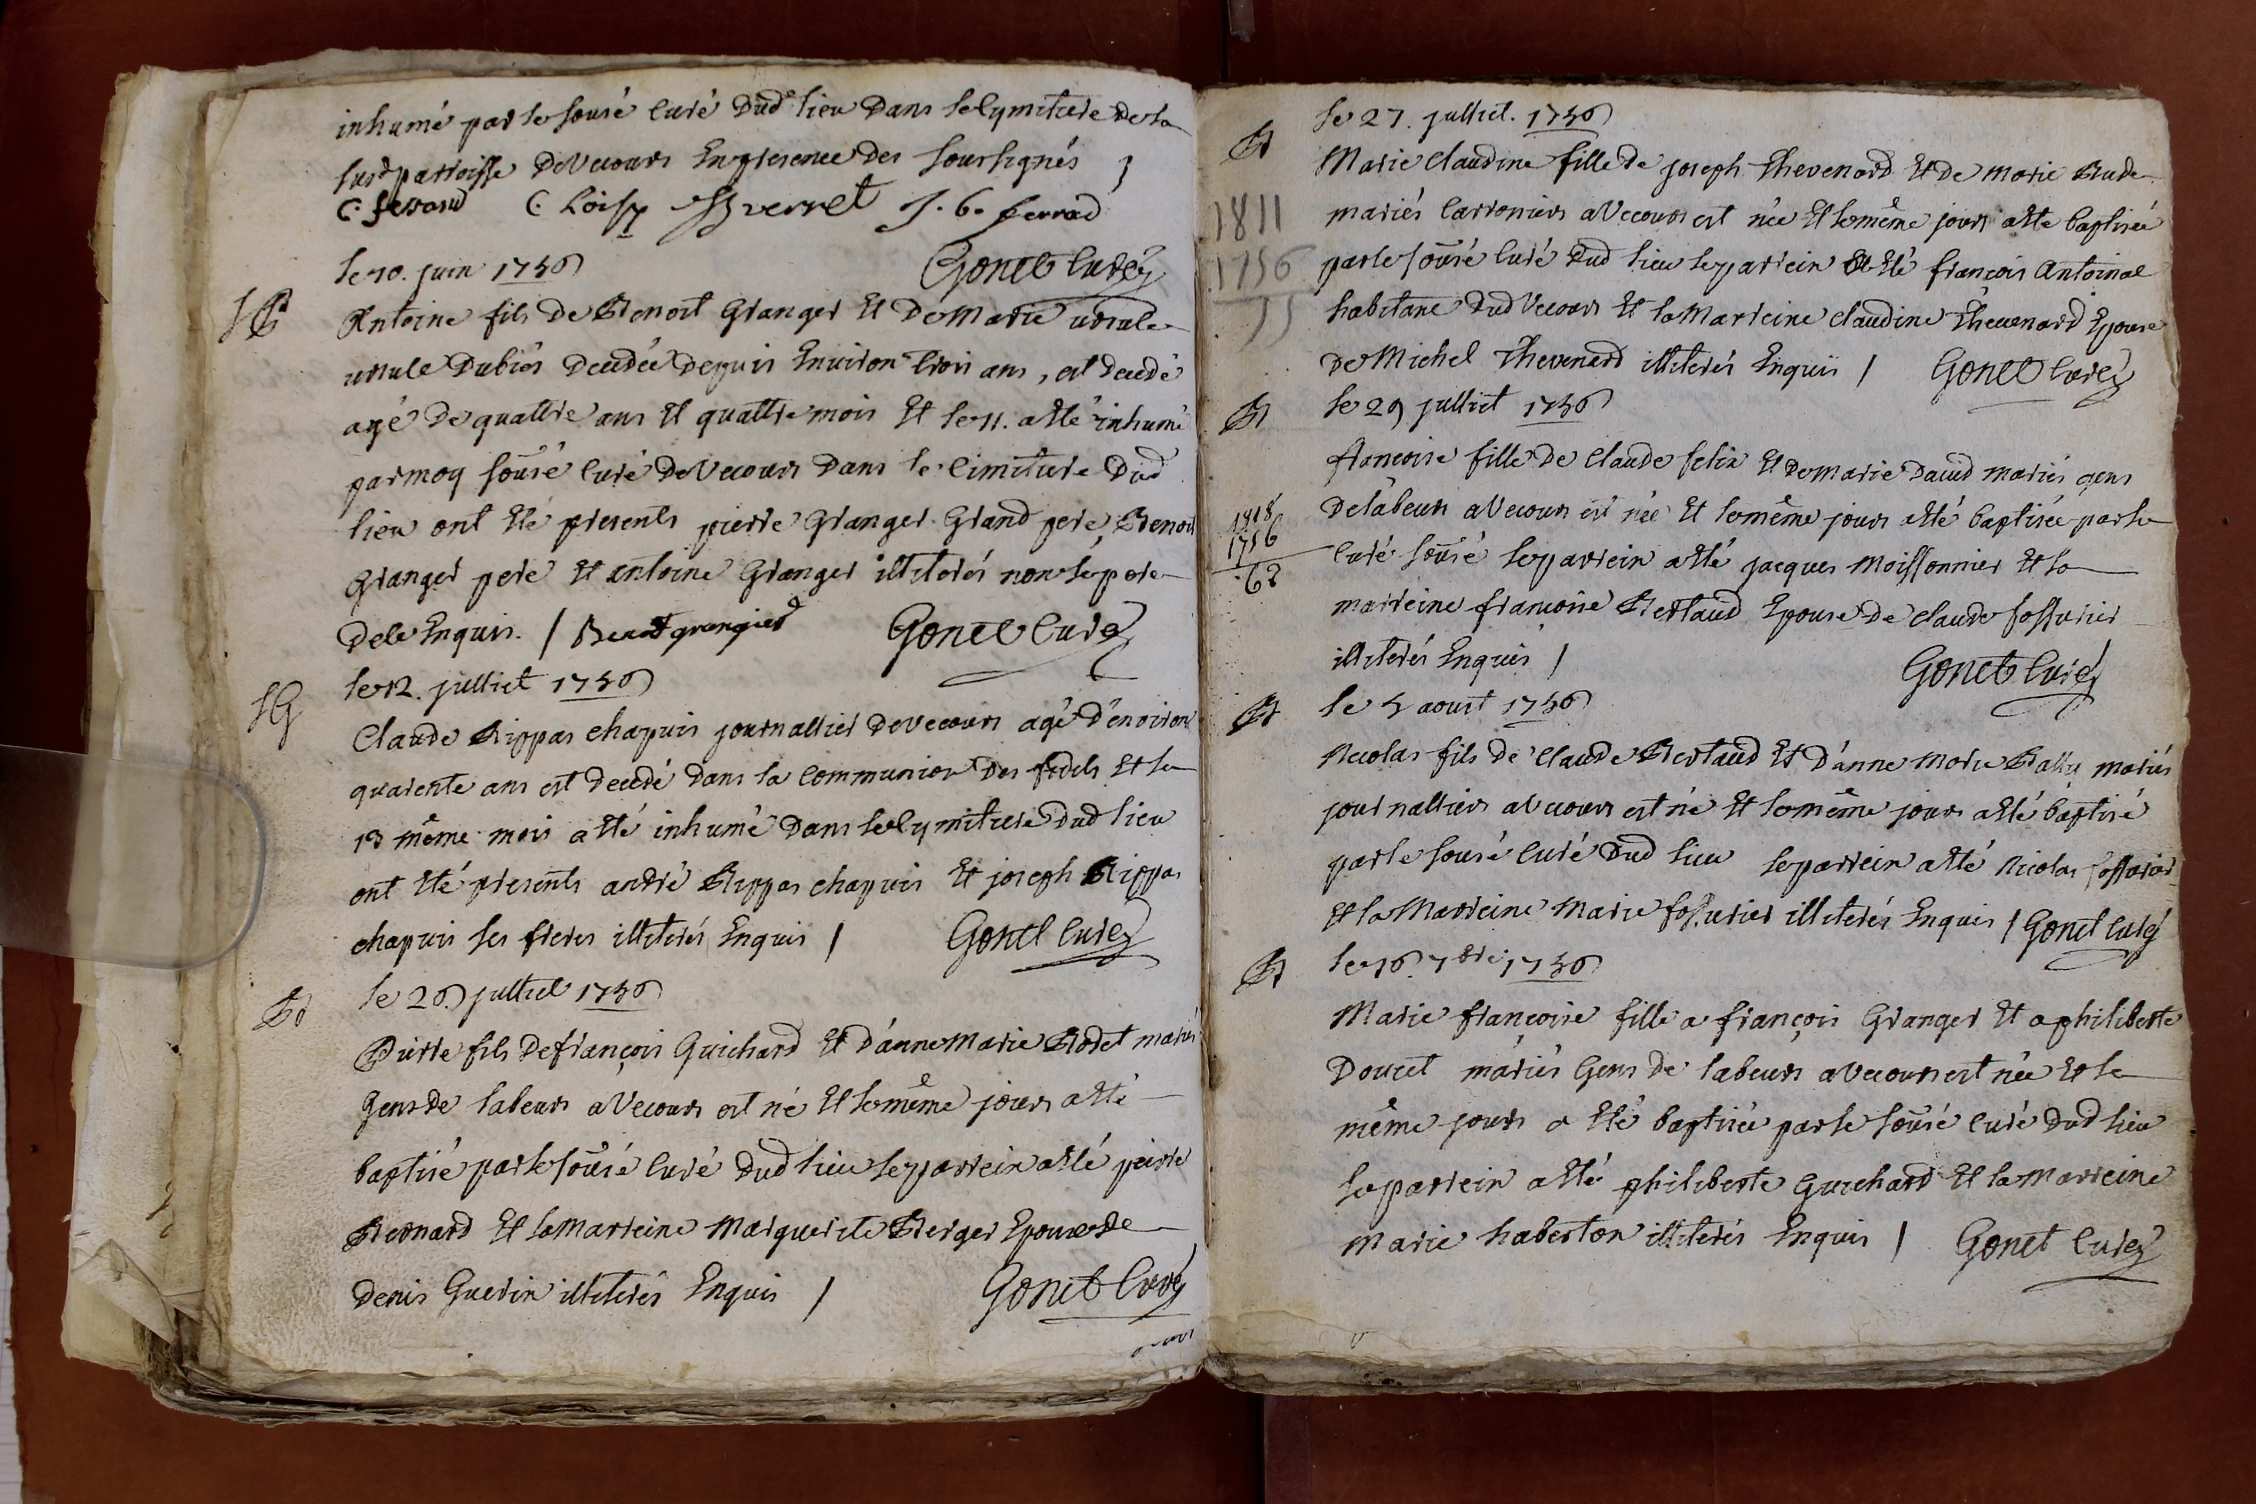 inhumé par le sousé curé dud lieu dans le cymitiere de la
susd parroisse de Vecours En presence des soussignés
C. ferrand C. Loisy Verret J. B. ferrad
Gonet curé
le 10. juin 1756
Antoine fils de Benoit Granger Et de Marie ursule
ursule Dubiés decedée depuis Environ trois ans, est decedé
agé de quattre ans Et quattre mois Et le 11. a Eté inhumé
par moy sousé curé de Vecours dans le cimitiere dud
lieu ont Eté presents pierre Granger Grand pere, Benoit
Granger pere Et antoine Granger illiterés non le pere
de ce Enquis. / Benoit grangier Gonet curé
le 12. julliet 1756
Claude Rippas chapuis journallier de Vecours agé d'environ
quarente ans est decedé dans la communion des fidels Et le
13 même mois a Eté inhumé dans le cymitiere dud lieu
ont Eté presents andré Rippas chapuis Et joseph Rippas
chapuis ses freres illiterés Enquis / Gonet curé
le 26 julliet 1756
Pierre fils de françois Guichard Et d'anne Marie Rodet mariés
Gens de labeurs a Vecours est né Et le même jours a Eté
baptisé par le sousé curé dud lieu le parrein a Eté peirre
Bernard Et la Marreine Marguerite Berger Epouse de
denis Guerin illiterés Enquis / Gonet curé
le 27. julliet. 1756
Marie claudine fille de joseph thevenard Et de Marie Bude
mariés carroniers a Vecours est née Et le même jours a Eté baptisée
1811
par le sousé curé dud lieu le parrein a Eté françois Antoinat
1756
habitant dud Vecours Et la Marreine claudine thevenard Epouse
55
de Michel thevenard illiterés Enquis / Gonet curé
le 29 julliet 1756
françoise fille de claude felix Et de Marie david mariés gens
de labeurs a Vecours est née Et le même jours a Eté baptisée par le
1818
1756
62
curé sousé le parrein a Eté jacques Moissonnier Et la
marreine françoise Bertaud Epouse de claude fossurier
illiterés Enquis / Gonet curé
le 5 aoust 1756
Nicolas fils de claude Bertaud Et d'anne Marie mariés
journalliers a Vecours est né Et le même jours a Eté baptisé
par le sousé curé dud lieu le parrein a Eté Nicolas fossurier
Et la Marreine Marie fossurier illiterés Enquis / Gonet curé
le 16. 7bre 1756
Marie françoise fille a françois Granger Et a philiberte
Doucet mariés Gens de labeurs a Vecours est née Et le
même jours a Eté baptisée par le sousé curé dud lieu
le parrein a Eté philiberte Guichard Et la Marreine
Marie haberton illiterés Enquis / Gonet curé